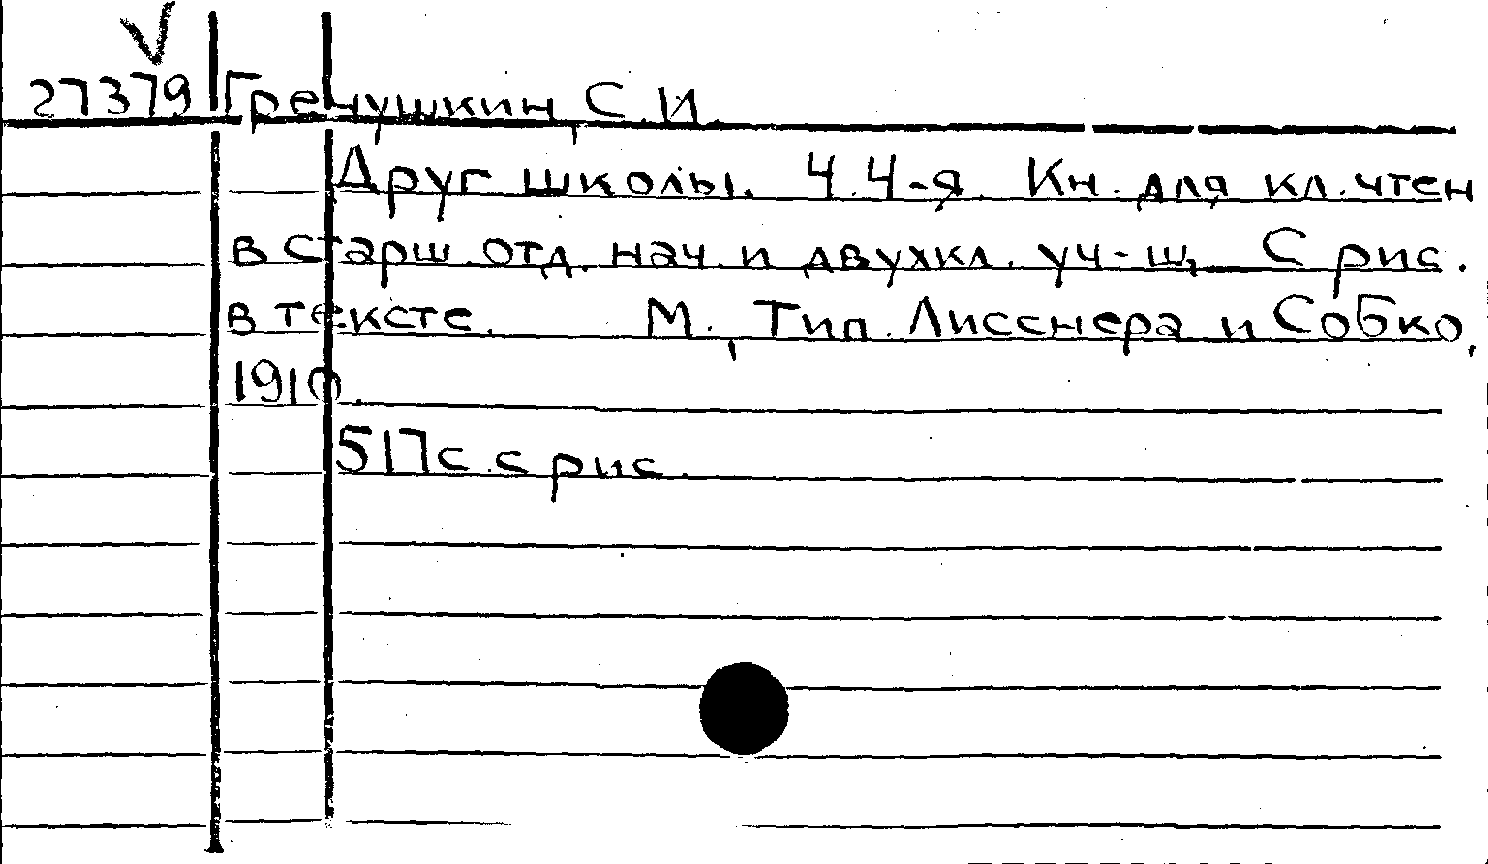 27379 Гречушкин, С.И.
Друг школы. Ч.4-я. Кн. для кл. чтен
в старш. отд. нач. и двухкл. уч-щ. С рис.
в тексте. М., Тип. Лисснера и Собко,
1910.
517с. с рис.